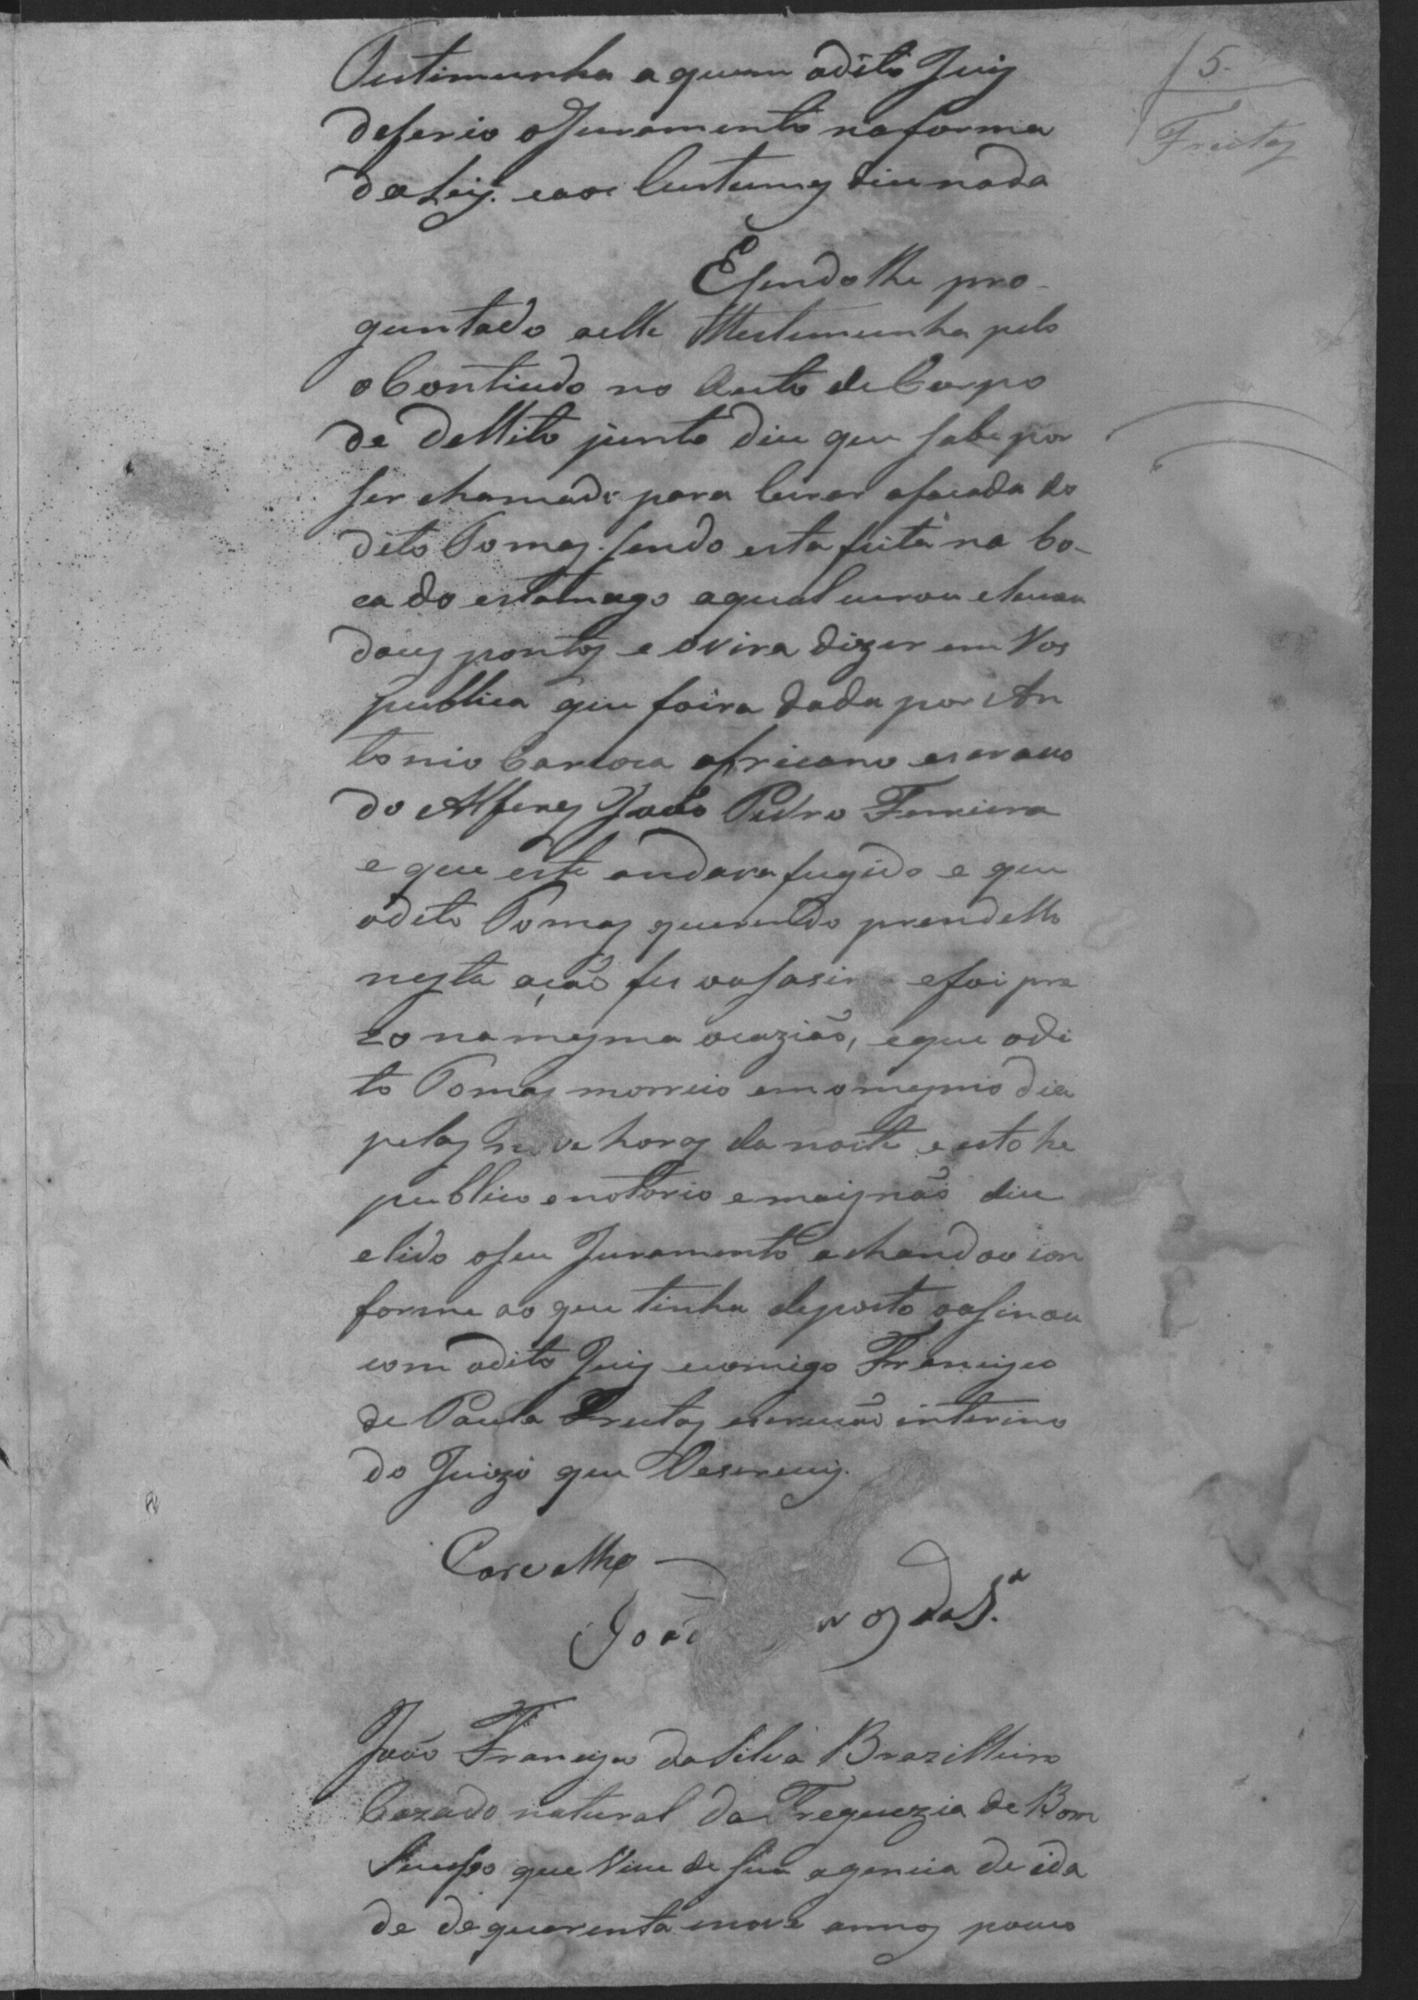 5
Freitas
Testimunha a quem o dito Juis
deferio o Juramento na forma
da Ley. e aos Custumes diu nada
E sendo lhe pro-
guntado a elle Ttestemunha pelo
o Contiudo no Auto de Corpo
de Dellito junto diu que sabe por
ser chamado para Curar a facada do
dito Tomas. sendo esta feita na bo-
ca do estamago a qual curou e levou
dous pontos e ovira dizer em Vos
publica que foira dada por An
tonio Carioca africano escravo
do Alferes João Pedro Ferreira
e que este andava fugido e que
o dito Tomas querendo prendello
nesta ação fes o asasi e foi pre
zo na mesma ocazião, e que o di
to Tomas morreio em o mesmo dia
pelas nove horas da noite e isto he
publico e notorio e mais não diu
e lido o seu Juramento achando o con
forme ao que tinha deposto o asinou
com o dito Juis e comigo Francisco
de Paula Freitas escrivão interino
do Juizo que Oescrevis.
Carvalho
João da S.ª
João Francisco da Silva Brazilleiro
Cazado natural da Freguezia de Bom
Sucesso que Vive de sua agencia de ida
de de quarenta e nove annos pouco